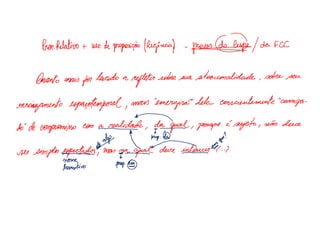 Pron. Relativo + uso de preposição (Regência) - marca (da banca) / da FCC
Quanto mais for levado a refletir sobre sua situacionalidade, sobre seu
enraizamento espaçotemporal, mais "emergirá" dela conscientemente "carrega-
do" de compromisso com a realidade, da qual, porque é sujeito, não deve
ser simples espectador, mas na qual deve intervir (...)
prep. De
nome
prep. em